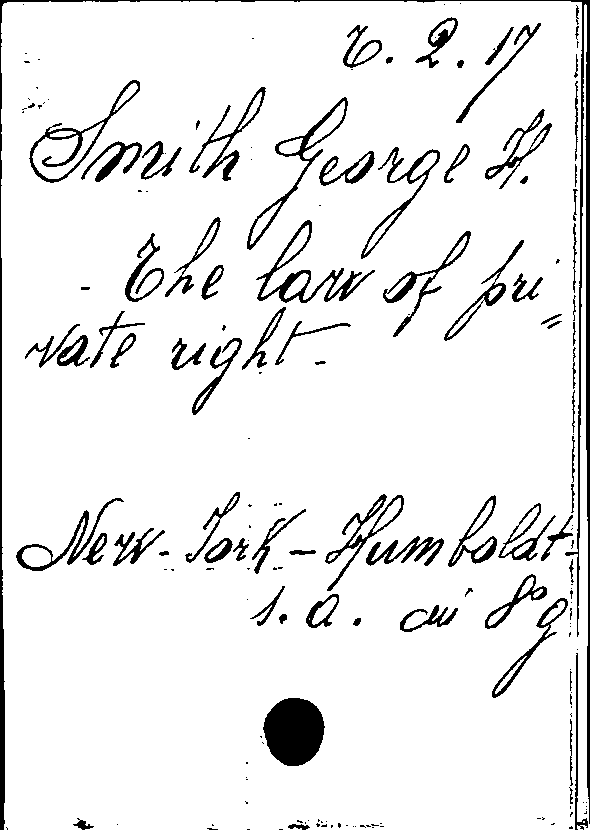 6. 2. 17
Smith George H.
- The law of pri=
vate right -
New-York - Humboldt -
s. a. in 8° g